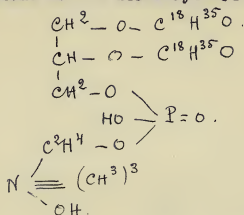 CH² — O — C¹⁸H³⁵O.
CH — O — C¹⁸H³⁵O
CH² — O
HO
P = O.
C²H⁴ — O
N ≡ (CH³)³
OH.